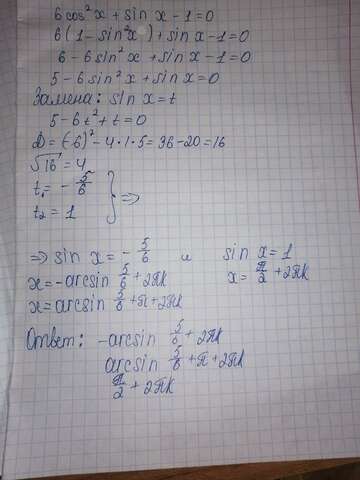 6 cos² x + sin x - 1 = 0
6(1 - sin² x) + sin x - 1 = 0
6 - 6 sin² x + sin x - 1 = 0
5 - 6 sin² x + sin x = 0
Замена: sin x = t
5 - 6t² + t = 0
D = (-6)² - 4·1·5 = 36 - 20 = 16
√16 = 4
t₁ = - 5/6
t₂ = 1 } ⇒
⇒ sin x = - 5/6 и sin x = 1
x = -arcsin 5/6 + 2πk x = π/2 + 2πk
x = arcsin 5/6 + π + 2πk
Ответ: -arcsin 5/6 + 2πk
arcsin 5/6 + π + 2πk
π/2 + 2πk